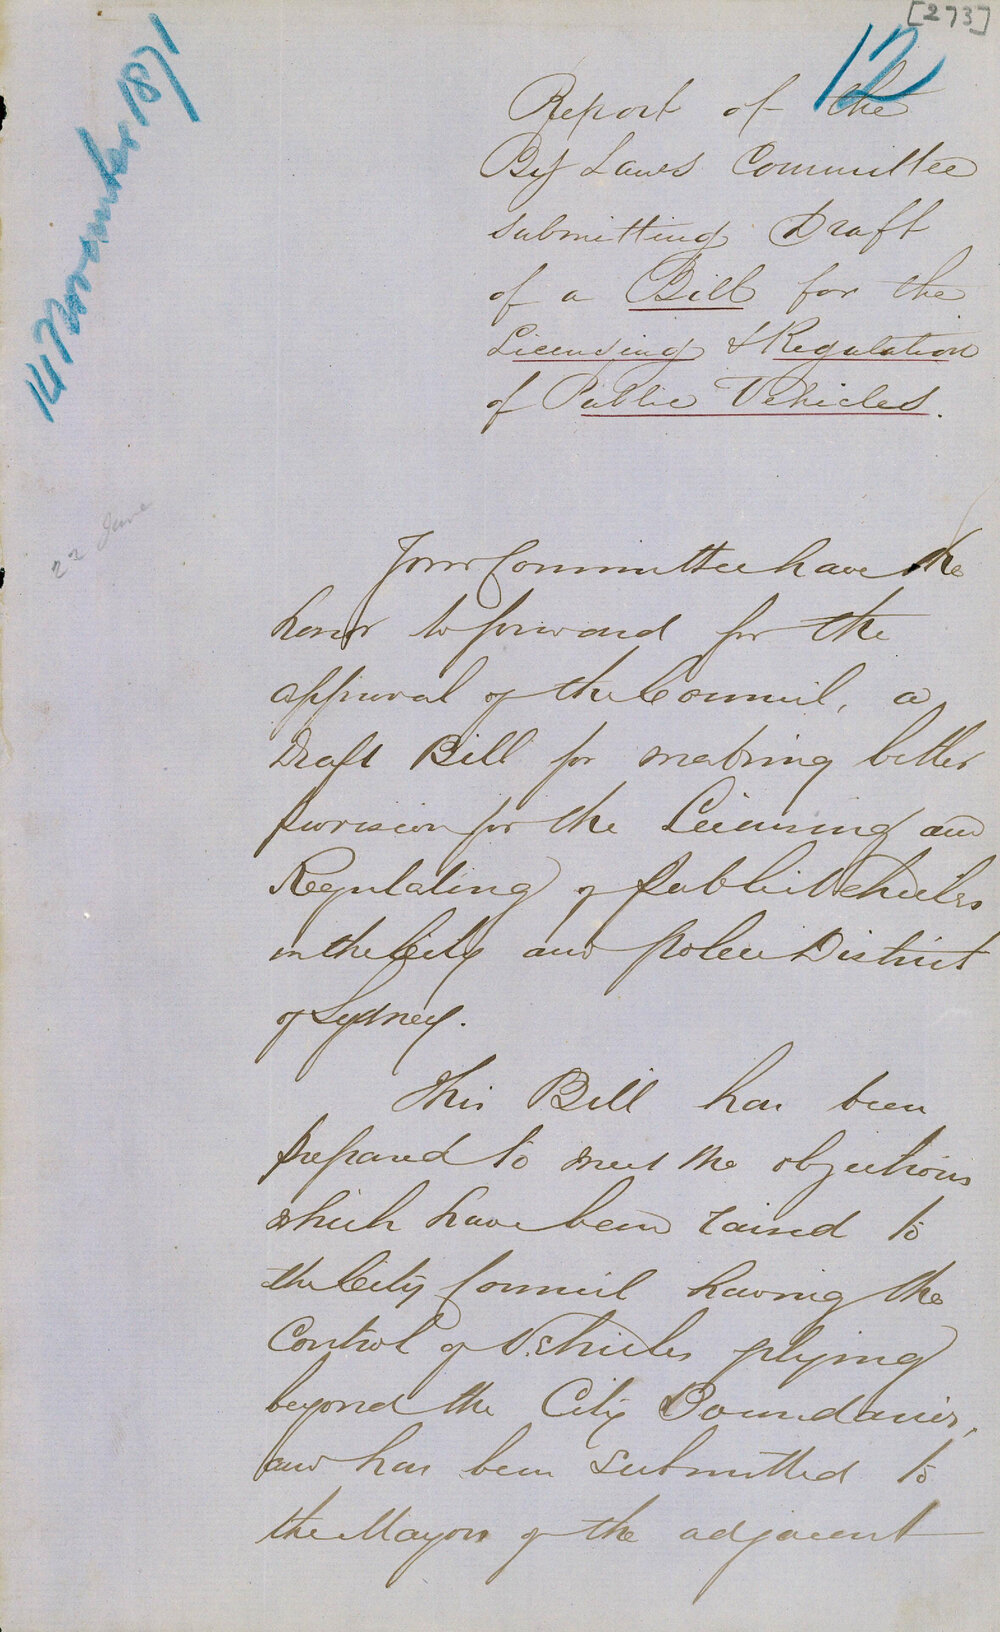 [273]
12
14 November 1871
Report of the
By Laws Committee
submitting Draft
of a Bill for the
Licensing & Regulation
of Public Vehicles.
22 June
Your Committee have the
honor to forward for the
approval of the Council, a
Draft Bill for making better
provision for the Licensing and
Regulating of Public Vehicles
in the City and Police District
of Sydney.
This Bill has been
prepared to meet the objections
which have been raised to
the City Council having the
Control of Vehicles plying
beyond the City Boundaries,
and has been submitted to
the Mayors of the adjacent